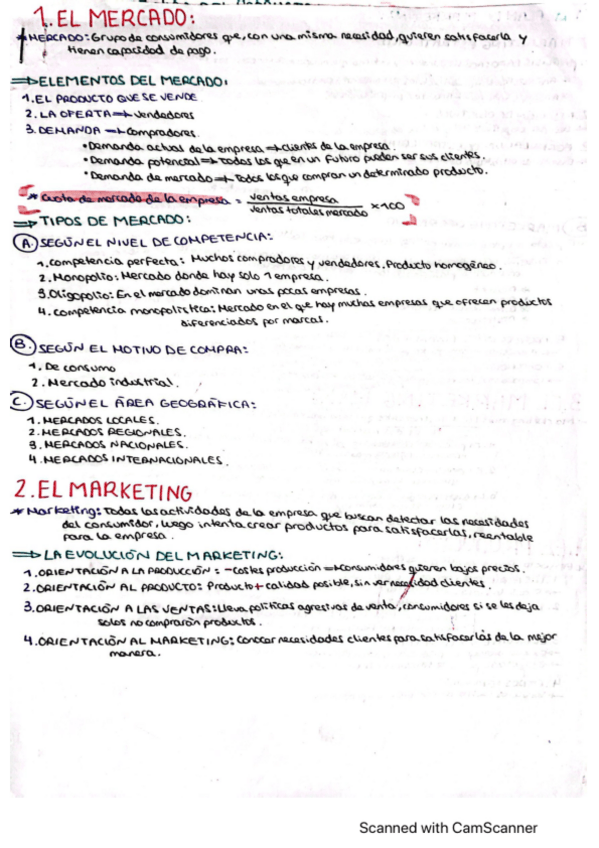 1. EL MERCADO:
* MERCADO: Grupo de consumidores que, con una misma necesidad, quieren satisfacerla y
tienen capacidad de pago.
⇒ ELEMENTOS DEL MERCADO:
1. EL PRODUCTO QUE SE VENDE
2. LA OFERTA → Vendedores
3. DEMANDA → Compradores.
• Demanda actual de la empresa → clientes de la empresa.
• Demanda potencial → Todos los que en un futuro pueden ser sus clientes.
• Demanda de mercado → Todos los que compran un determinado producto.
* Cuota de mercado de la empresa = ventas empresa / ventas totales mercado × 100
⇒ TIPOS DE MERCADO:
A. SEGÚN EL NIVEL DE COMPETENCIA:
1. Competencia perfecta: Muchos compradores y vendedores. Producto homogéneo.
2. Monopolio: Mercado donde hay solo 1 empresa.
3. Oligopolio: En el mercado dominan unas pocas empresas.
4. Competencia monopolística: Mercado en el que hay muchas empresas que ofrecen productos
diferenciados por marcas.
B. SEGÚN EL MOTIVO DE COMPRA:
1. De consumo
2. Mercado industrial.
C. SEGÚN EL ÁREA GEOGRÁFICA:
1. MERCADOS LOCALES.
2. MERCADOS REGIONALES.
3. MERCADOS NACIONALES.
4. MERCADOS INTERNACIONALES.
2. EL MARKETING
* Marketing: Todas las actividades de la empresa que buscan detectar las necesidades
del consumidor, luego intenta crear productos para satisfacerlas, reentable
para la empresa.
⇒ LA EVOLUCIÓN DEL MARKETING:
1. ORIENTACIÓN A LA PRODUCCIÓN: - costes producción → consumidores quieren bajos precios.
2. ORIENTACIÓN AL PRODUCTO: Producto + calidad posible, sin ver necesidad clientes
3. ORIENTACIÓN A LAS VENTAS: Lleva políticas agresivas de venta, consumidores si se les deja
solos no comprarán productos.
4. ORIENTACIÓN AL MARKETING: Conocer necesidades clientes para satisfacerlas de la mejor
manera.
Scanned with CamScanner